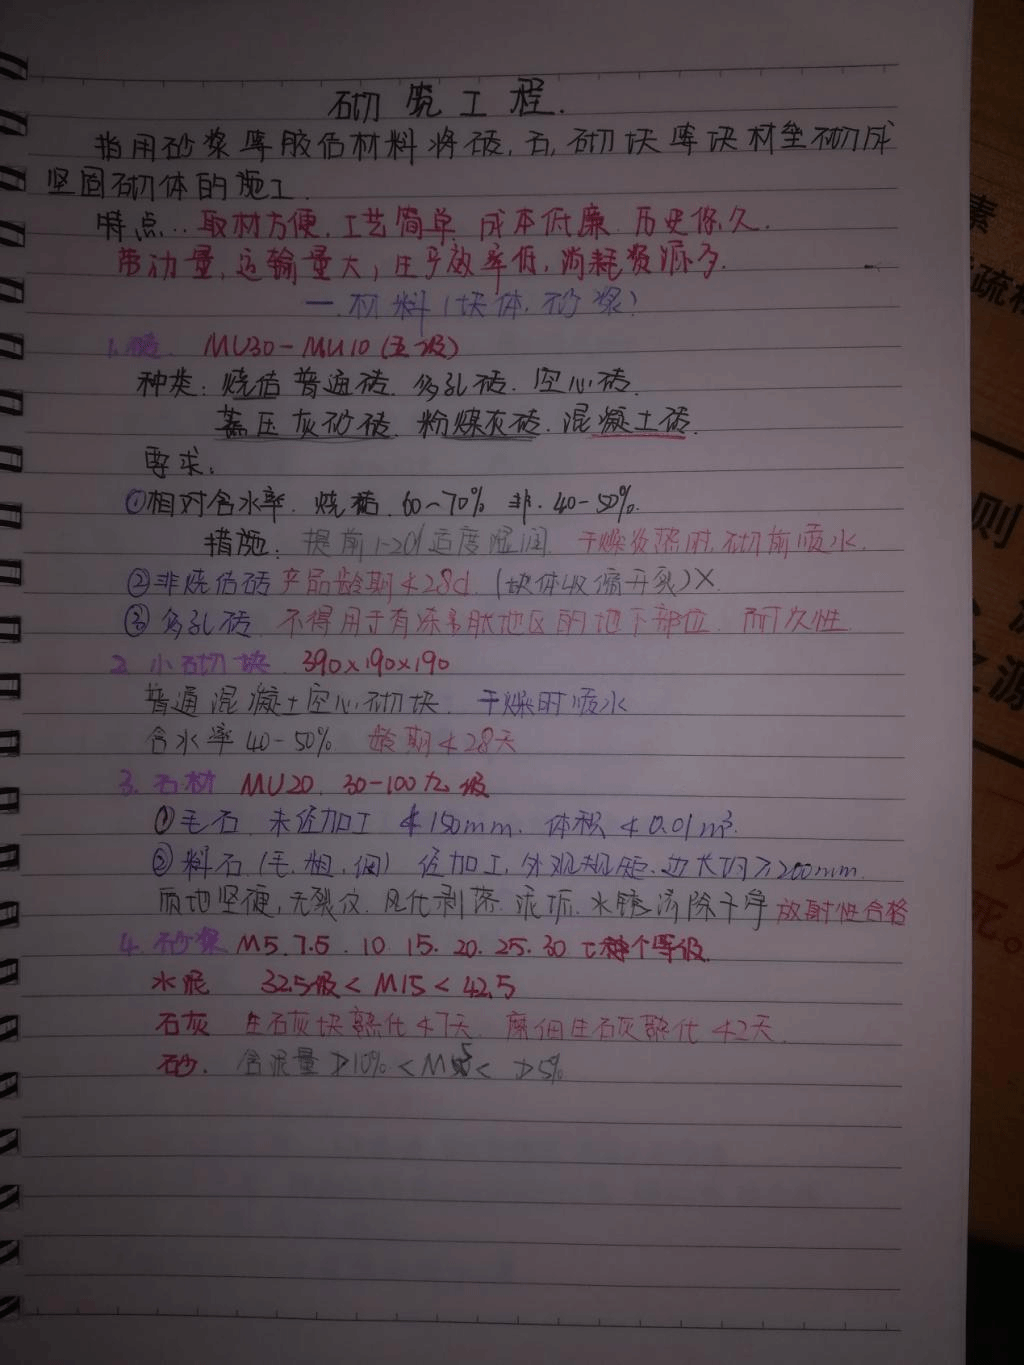 砌筑工程.
指用砂浆等胶结材料将砖,石,砌块等块材垒砌成
坚固砌体的施工.
特点:取材方便,工艺简单,成本低廉.历史悠久.
劳动量,运输量大,生产效率低,消耗资源多.
一.材料(块体.砂浆)
1.砖. MU30-MU10(五级)
种类:烧结普通砖.多孔砖.空心砖.
蒸压灰砂砖.粉煤灰砖.混凝土砖.
要求:
①相对含水率.烧结.60~70% 非.40-50%.
措施:提前1-2d适度湿润.干燥炎热时,砌前喷水.
②非烧结砖产品龄期≮28d.(块体收缩开裂)×
③多孔砖.不得用于有冻胀地区的地下部位.耐久性.
2.小砌块.390×190×190
普通混凝土空心砌块.干燥时喷水
含水率40-50% 龄期≮28天
3.石材 MU20.30-100九级
①毛石.未经加工≮150mm.体积≮0.01m³.
②料石(毛.粗.细)经加工,外观规矩.边长均≥200mm.
质地坚硬,无裂纹.风化剥落.泥垢.水锈清除干净放射性合格
4.砂浆 M5.7.5.10.15.20.25.30七种个等级.
水泥 32.5级<M15<42.5
石灰 生石灰块熟化≮7天.磨细生石灰熟化≮2天.
砂.含泥量≯10%<M5<≯5%